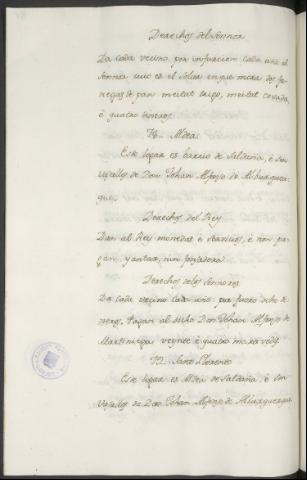 Derechos del Sennor
Da cada vecino por infurcion cada uno al
Sennor cuio es el Solar en que mora dos fa-
negas de pan meitat trigo, meitat cevada,
è quatro dineros.
Mota:
Este logar es barrio de Saldaña, è son
vasallos de Don Johan Alfonso de Alburquer-
que.
Derechos del Rey
Dan al Rey monedas è servicios, è non pa-
gan yantar, nin fonsadera.
Derechos de los Sennores
Da cada vecino cada uno por fuero ocho di-
neros. Pagan al dicho Don Johan Alfonso de
Martiniega veynte è quatro maravedis.
Sant Llorente
Este logar es Aldea de Saldaña, è son
vasallos de Don Johan Alfonso de Alburquerque